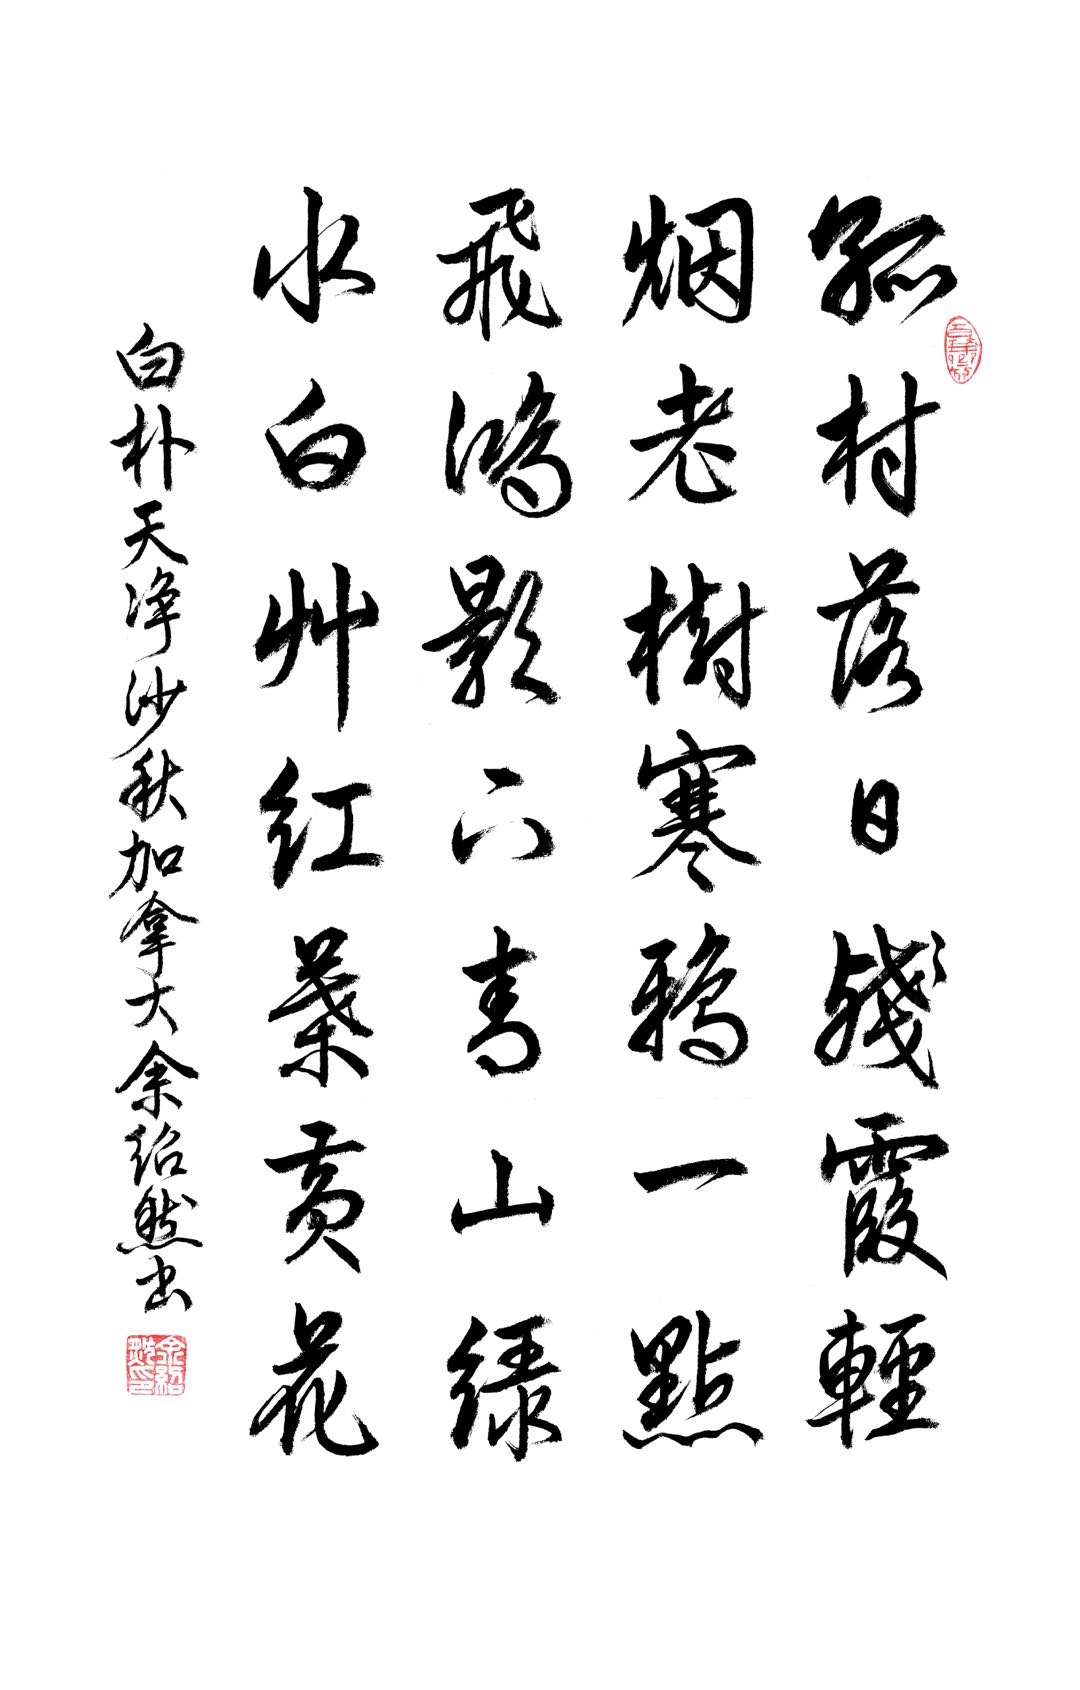 孤村落日殘霞輕
烟老樹寒鴉一點
飛鴻影下青山綠
水白艸紅葉黄花
白朴天净沙秋加拿大余绍然书
余紹然印